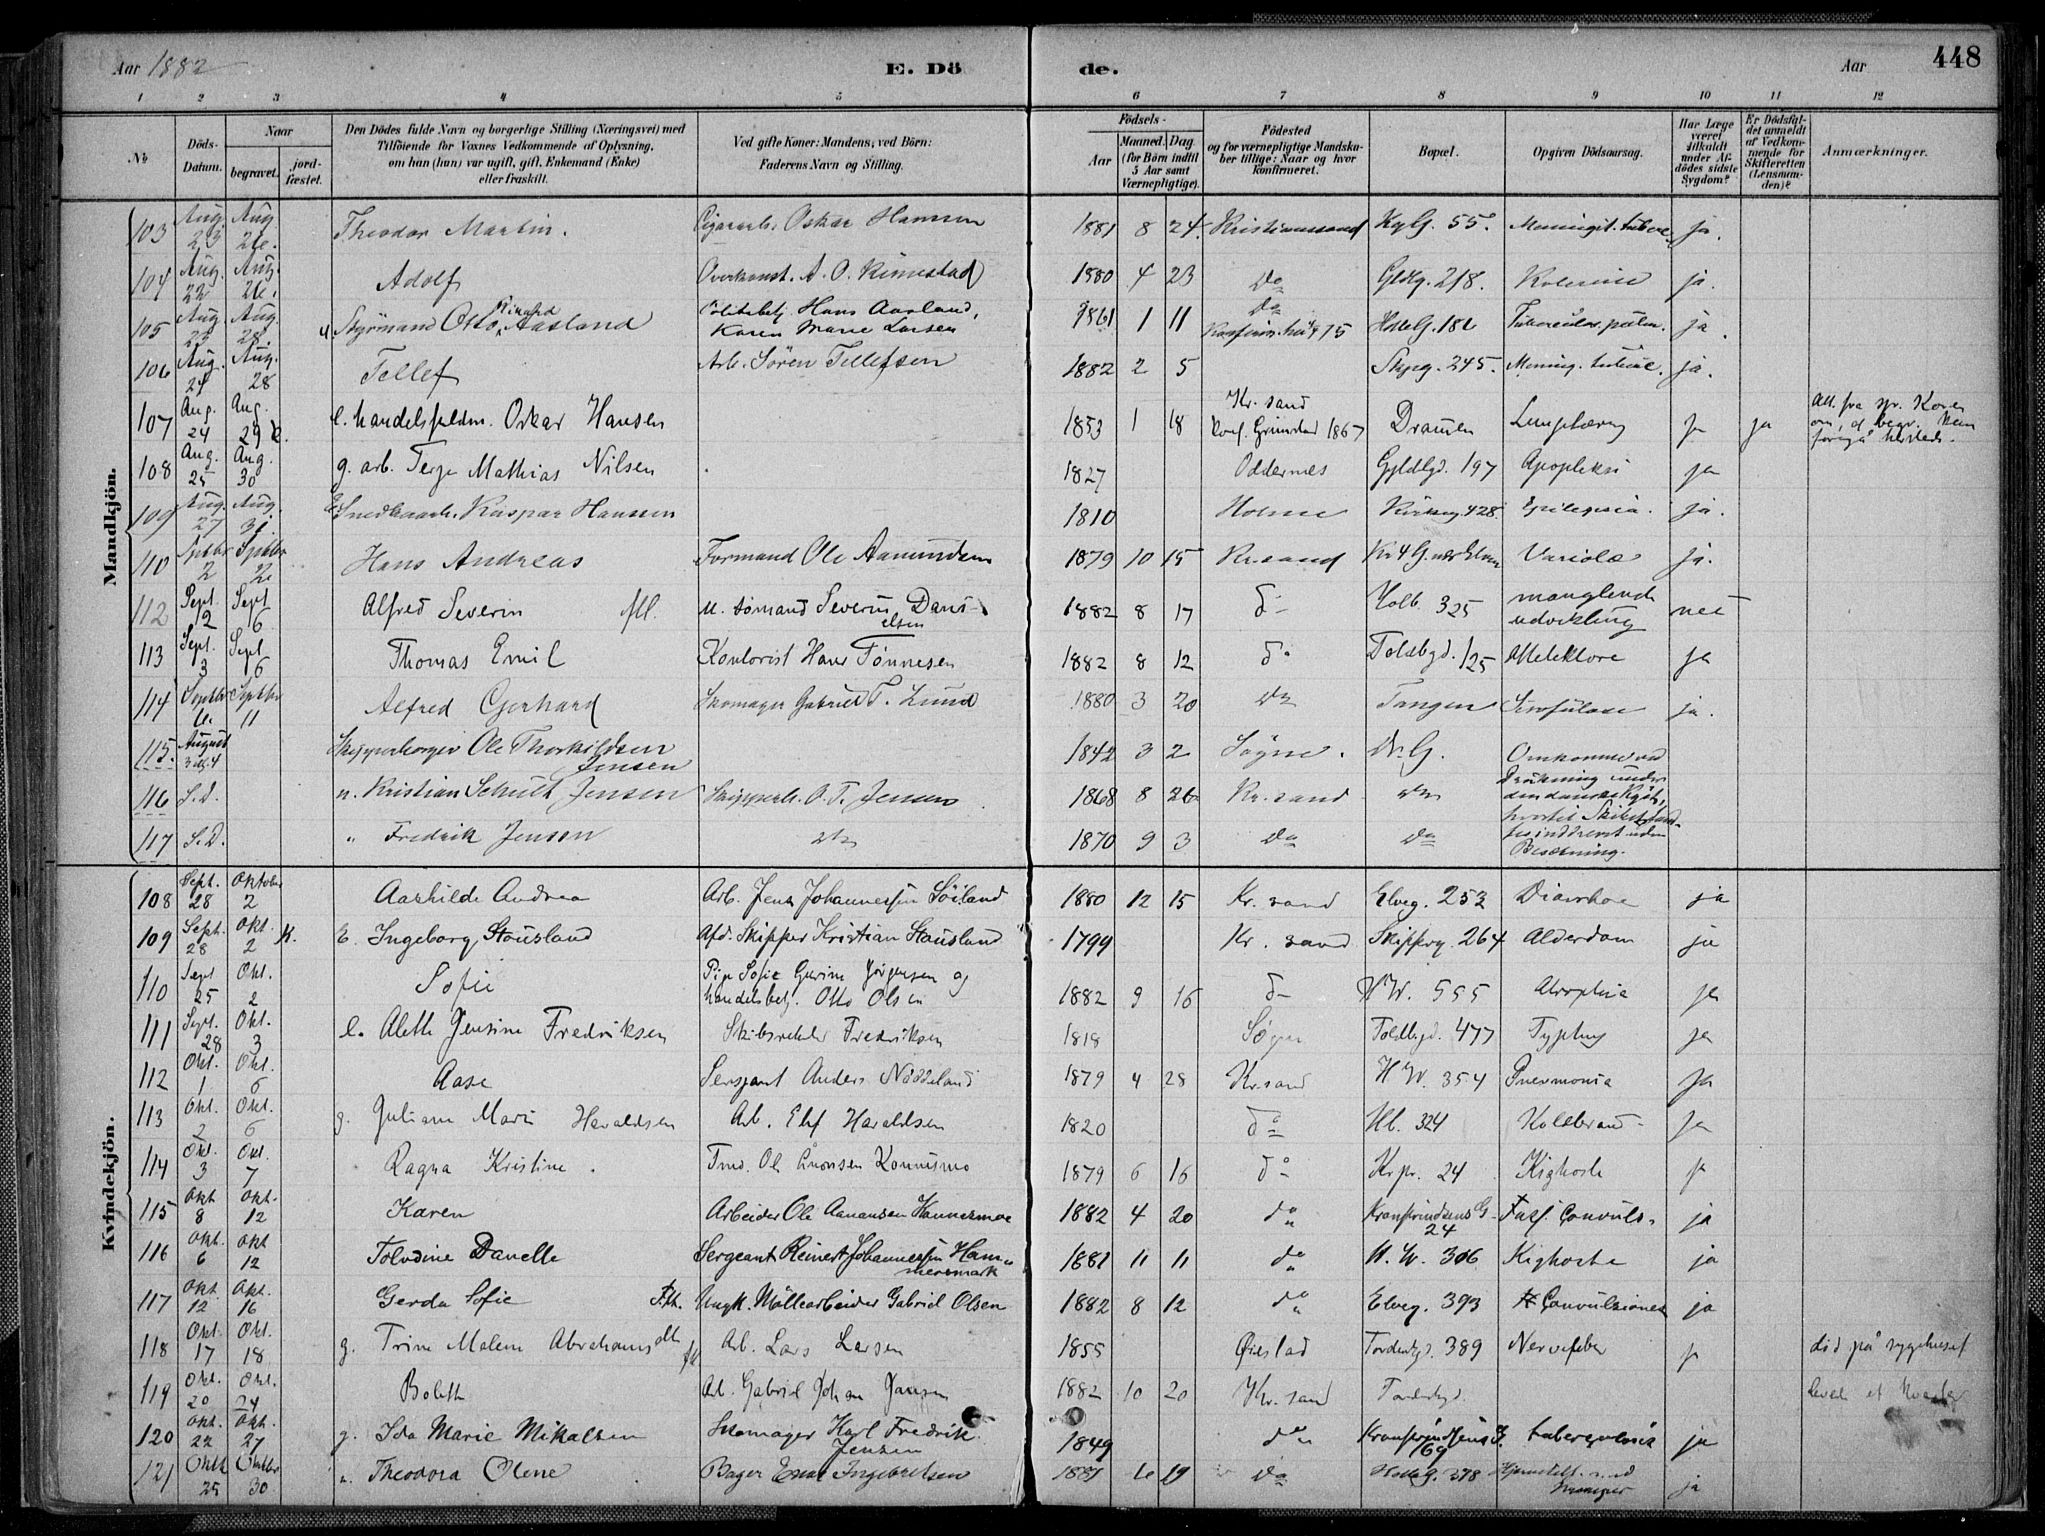 Aar 1882 E. Dö de. Aar 448
1 2 3 4 5 6 7 8 9 10 11 12
№ Döds-Datum. Naar begravet. jordfæstet. Den Dödes fulde Navn og borgerlige Stilling (Næringsvei) med Tilföiende for Voxnes Vedkommende af Oplysning, om han (hun) var ugift, gift, Enkemand (Enke) eller fraskilt. Ved gifte Koner: Mandens; ved Börn: Faderens Navn og Stilling. Födsels- Aar Maaned. Dag. (for Börn indtil 5 Aar samt Værnepligtige). Födested og for værnepligtige Mandskaber tillige: Naar og hvor konfirmeret. Bopæl. Opgiven Dödsaarsag. Har Læge været tilkaldt under Afdödes sidste Sygdom? Er Dödsfaldet anmeldt af Vedkommende for Skifteretten (Lensmanden)? Anmærkninger.
Mandkjön.
103 Aug. 23 Aug. 26. Theodor Martin. Cigararb. Oskar Hansen 1881 8 24. Kristianssand 55. Meningit. ja.
104 Aug. 22 Aug. 26. Adolf Overkonst. A. O. Rimestad 1880 4 23 Do 218. Kolerine ja.
105 Aug. 23 Aug. 28. u. Styrmand Otto Rikard Aasland Hans Aasland, Karen Marie Larsen 1861 1 11 Do HolbG. 186 ja.
106 Aug. 24 Aug. 28 Tellef Arb. Sören Tellefsen 1882 2 5 Skpg. 245. Mening. ja.
107 Aug. 24 Aug. 29 K. e. Oskar Hansen 1853 1 18 Kr. sand Konf. Grimstad 1867 Dramen Lungetæring ja ja
108 Aug. 25 Aug. 30 g. arb. Terje Mathias Nilsen 1827 Oddernes Gyldlgd. 197 Apopleksi ja
109 Aug. 27 Aug. 31 E. Snedkerarb. Kaspar Hansen 1810 Holme 428 Epilepsia. ja.
110 Septbr 2 Septbr 2 Hans Andreas Formand Ole Aamundsen 1879 10 15 Kr.sand Variolæ ja.
112 Sept. 2 Sept 6 Alfred Severin fl. u. sømand Severin Danielsen 1882 8 17 do Holb. 325 manglende udvikling nei
113 Sept. 3 Sept 6 Thomas Emil Kontorist Hans Tønnesen 1882 8 12 do Toldbgd. 125 Atelektase ja
114 Septbr 6. Septbr 11 Alfred Gerhard Skomager Gabriel T. Lund 1880 3 20 Do Tangen Skrofulose ja.
115. August 3 el. 4 Skipperborger Ole Thorkildsen Jensen 1842 3 2 Søgne. Dr. G. Omkommet ved
116 S.D. u. Kristian Schult Jensen Skipperb. O. T. Jensen 1868 8 26 Kr.sand Do Drukning under den danske Kyst,
117 S.D. " Fredrik Jensen Do 1870 9 3 Do Do hvortil Skibet fandtes inddrevet uden Besætning.
Kvindekjön.
108 Sept. 28 Oktober 2 Aashilde Andrea Arb. Jens Johannessen Söiland 1880 12 15 Kr. sand Elveg. 253 Diarrhoe ja
109 Sept. 28 Okt. 2 K. E. Ingeborg Stousland Afd. Skipper Kristian Stousland 1799 Kr. sand Skippeg. 264 Alderdom ja
110 Sept 25 Okt. 2 Sofie Pige Sofie Jørgensen og handelsbetj. Otto Olsen 1882 9 16 do H W. 555 Atrophia ja
111 Sept. 28 Okt. 3 e. Alette Jensine Fredriksen Skibsreder Fredriksen 1818 Søgne Toldbgd. 477 Typhus ja
112 Okt. 1 Okt. 6 Aase Sersjant Anders Noddeland 1879 4 28 Kr.sand H W. 354 Pneumonia ja
113 Okt. 2 Okt. 6 g. Juliane Marie Haraldsen Arb. Elef Haraldsen 1820 do Hl. 324 Koldbrand ja
114 Okt. 3 Okt. 7 Ragna Kristine. Tmd. Ol. Aronsen Konnismo 1879 6 16 do Krpr. 24 Kighoste ja
115 Okt 8 Okt. 12 Karen Arbeider Ole Aanonsen Hannesmoe 1882 4 20 do Kronprindsens G. 24 Convuls. ja
116 Okt. 6 Okt 12 Tolvdine Danelle Sergeant Reinert Johannessen Hammersmark 1881 11 11 do H. W. 306 Kighoste ja
117 Okt. 12 Okt. 16 Gerda Sofie Ungk. Möllearbeider Gabriel Olsen 1882 8 12 do Elveg. 393 Convulsiones ja
118 Okt. 17 Okt. 18 g. Trine Malene Abrahamsdtt Arb. Lars Larsen 1855 Øiestad Tordenbgd. 389 Nervefeber ja död på sygehuset
119 Okt. 20 Okt. 24 Bolette Arb. Gabriel Johan Jansen 1882 10 20 Kr. sand levede et kvarter
120 Okt. 22 Okt. 27 g. Ida Marie Mikalsen Skomager Karl Fredrik Jensen 1849 do Kronprindsens G. 69 tuberculosis ja
121 Oktb 25 Oktbr 30 u. Theodora Olene Bager Enar Ingebretsen 1881 6 19 Do HolbG. 378 ja